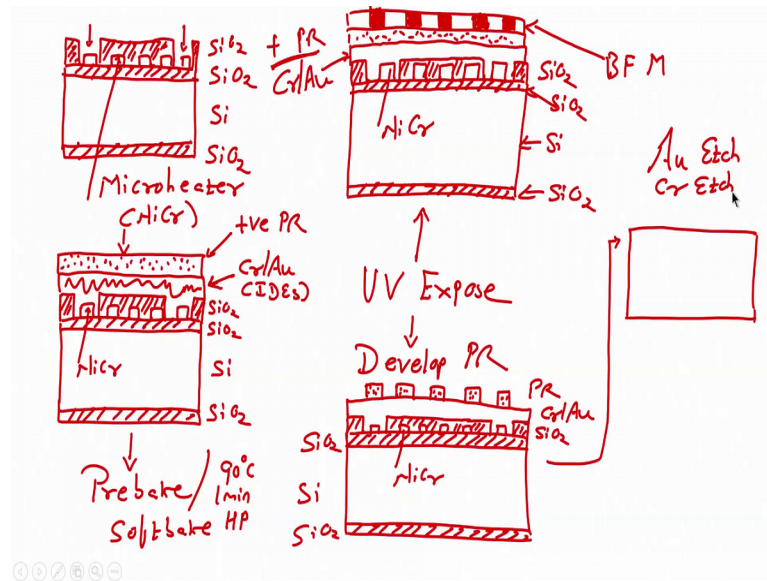 SiO2
SiO2
Si
SiO2
Microheater
(NiCr)
+ve PR
Cr/Au
(IDEs)
SiO2
SiO2
NiCr
Si
SiO2
Prebake/
Softbake
90°C
1min
HP
+ PR
Cr/Au
BFM
SiO2
SiO2
NiCr
Si
SiO2
UV Expose
Develop PR
PR
Cr/Au
SiO2
SiO2
NiCr
Si
SiO2
Au Etch
Cr Etch